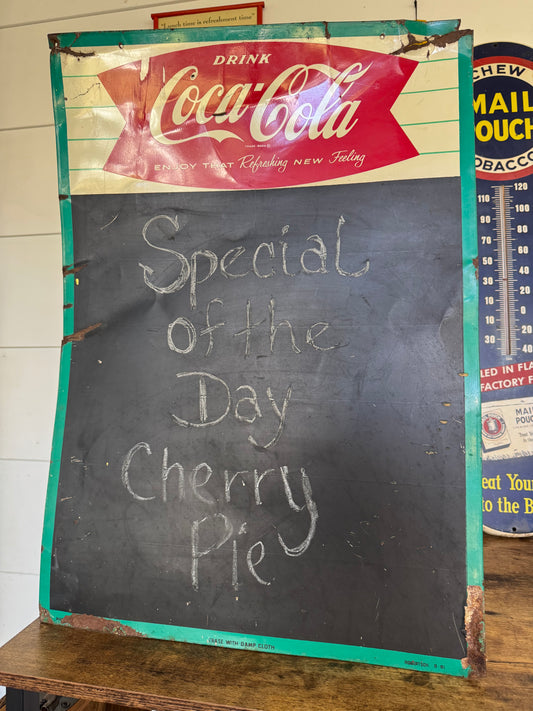 "Lunch time is refreshment time"
DRINK
Coca-Cola
TRADE MARK ®
ENJOY THAT Refreshing NEW Feeling
Special
of the
Day
Cherry
Pie
ERASE WITH DAMP CLOTH
CHEW
MAIL
POUCH
TOBACCO
110
90
70
50
30
120
100
80
60
40
LED IN FLA
FACTORY F
MAI
POUC
eat Your
to the B